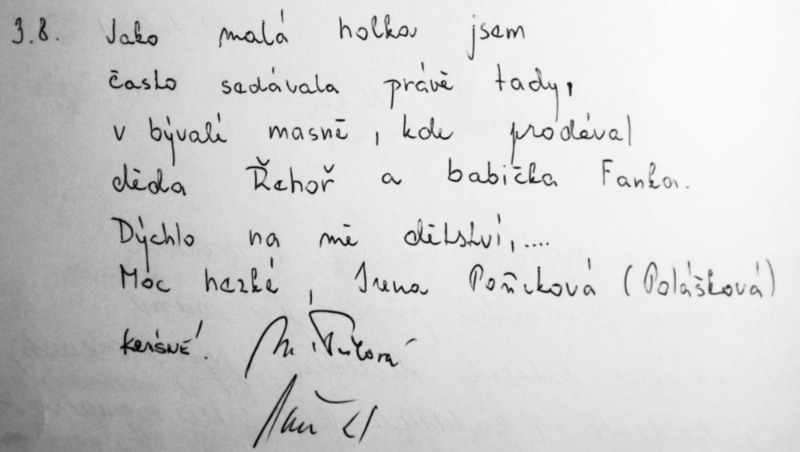 3.8. Jako malá holka jsem
často sedávala právě tady,
v bývalé masně, kde prodával
děda Řehoř a babička Fanka.
Dýchlo na mě dětství,....
Moc hezké, Irena (Polášková)
KRÁSNÉ!